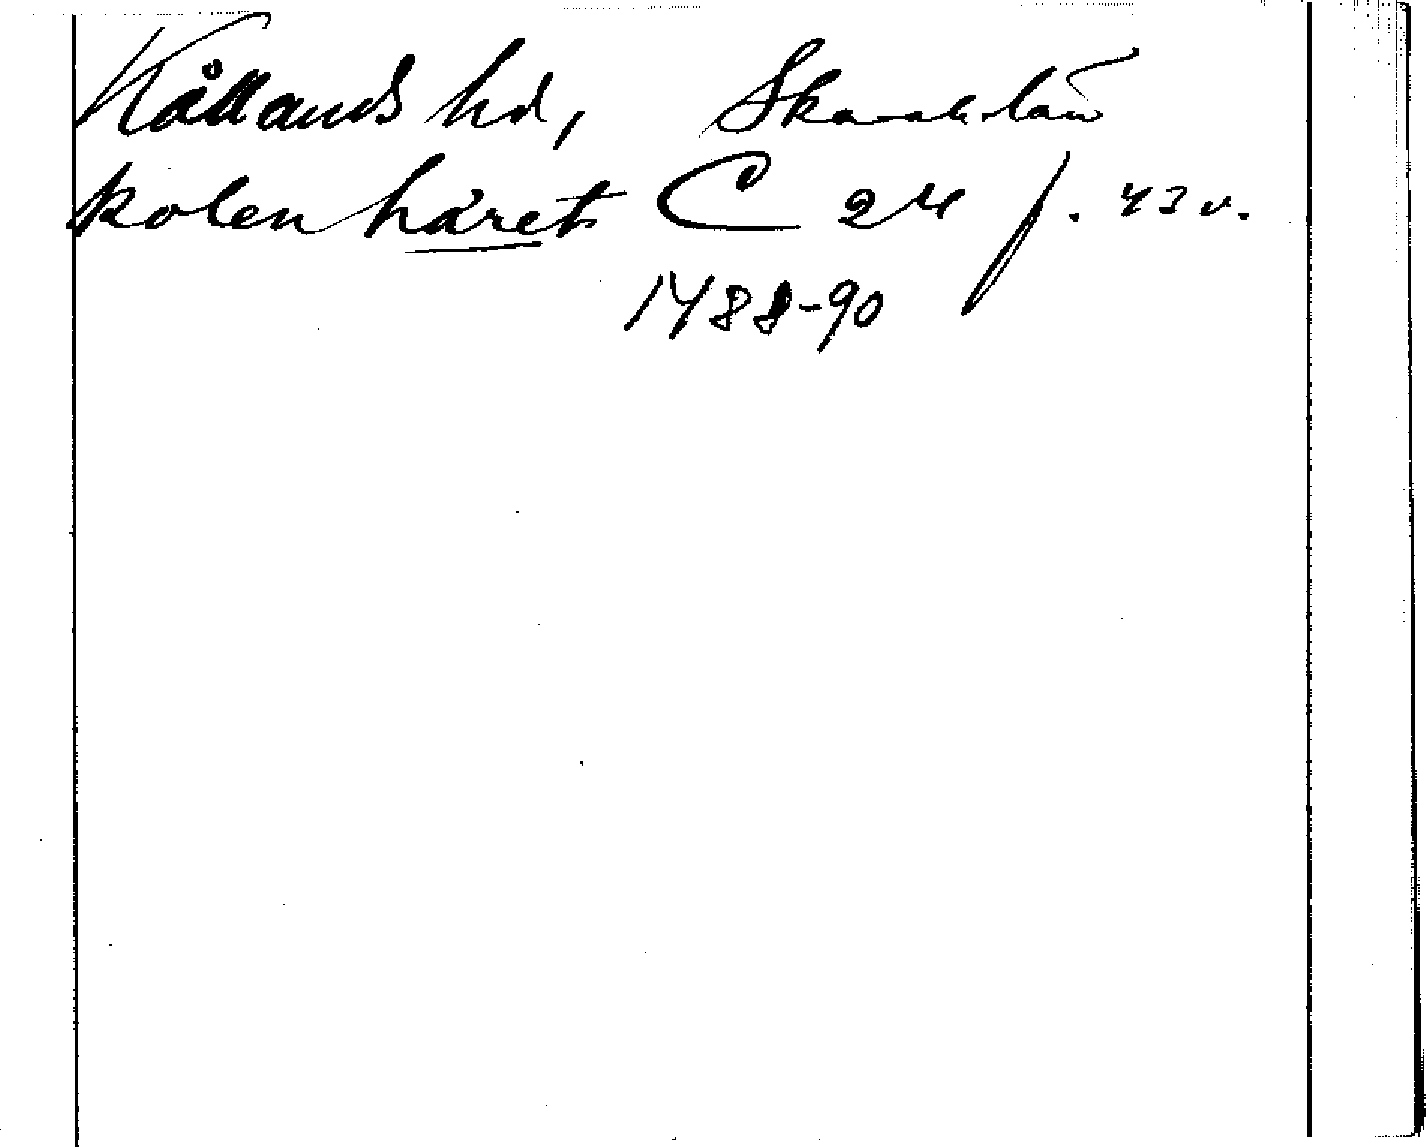 Kållands hd, Skarab. län
kolenhäret C 24 f. 43 v.
1488-90